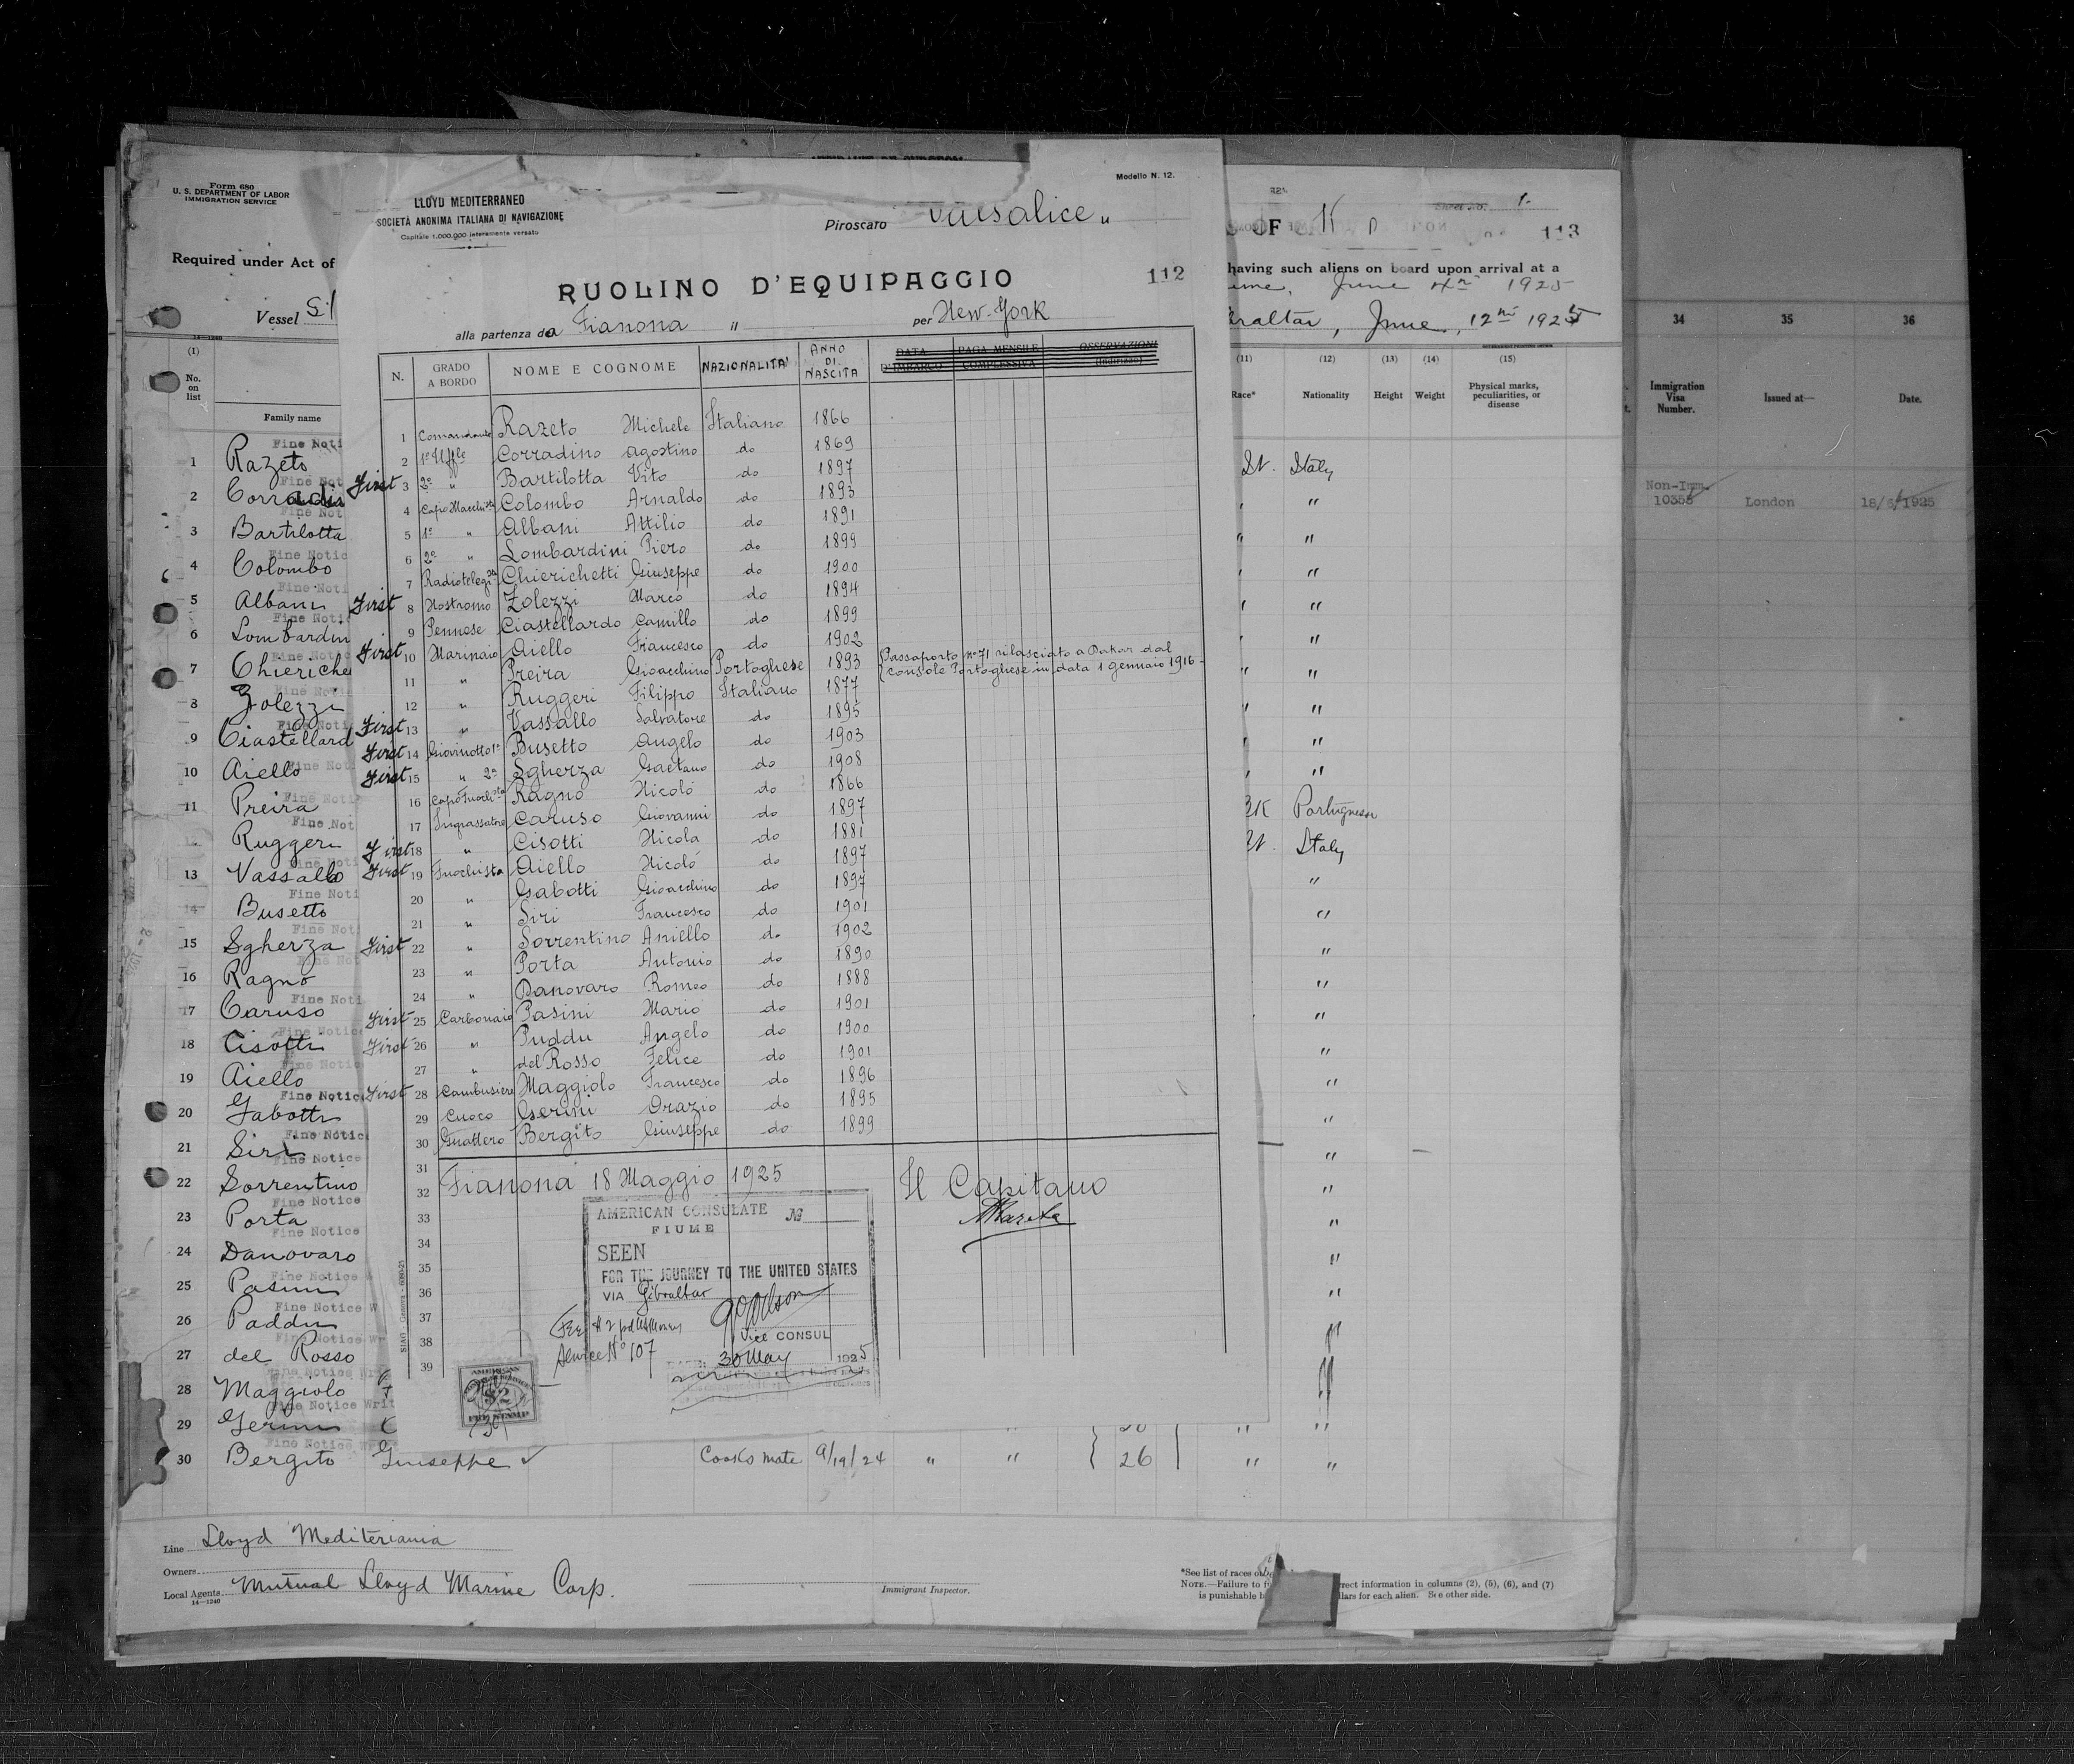 Form 680
U. S. DEPARTMENT OF LABOR
IMMIGRATION SERVICE
Required under Act of
Vessel
14—1240
(1)
No.
on
list
Family name
1 Razeto
2 Corradi
3 Bartilotta
4 Colombo
5 Albani
6 Lombardin
7 Chieriche
8 Zolezzi
9 Ciastellard
10 Aiello
11 Preira
12 Ruggeri
13 Vassallo
14 Busetto
15 Sgherza
16 Ragno
17 Caruso
18 Cisotti
19 Aiello
20 Gabotti
21 Siri
22 Sorrentino
23 Porta
24 Danovaro
25 Pasini
26 Paddu
27 del Rosso
28 Maggiolo
29 Gerini
30 Bergito Giuseppe ✓ Cooks mate 9/19/24 " " 26 " "
Line Lloyd Mediteriania
Owners
Local Agents Mutual Lloyd Marine Corp.
14—1240
Immigrant Inspector.
*See list of races
NOTE.—Failure to rrect information in columns (2), (5), (6), and (7)
is punishable lars for each alien. See other side.
LLOYD MEDITERRANEO
SOCIETÀ ANONIMA ITALIANA DI NAVIGAZIONE
Capitale 1.000.000 interamente versato
Modello N. 12.
Piroscafo Valsalice „
RUOLINO D'EQUIPAGGIO
112
alla partenza da Fianona il per New-York
N. GRADO A BORDO NOME E COGNOME NAZIONALITA' ANNO DI NASCITA DATA D'IMBARCO PAGA MENSILE COMPLESSIVA OSSERVAZIONI (Indirizzo)
1 Comandante Razeto Michele Italiano 1866
2 1° Uffle Corradino Agostino do 1869
First 3 2° " Bartilotta Vito do 1897
4 Capo Macchista Colombo Arnaldo do 1893
5 1° " Albani Attilio do 1891
6 2° " Lombardini Piero do 1899
7 Radiotelegsta Chierichetti Giuseppe do 1900
First 8 Nostromo Zolezzi Marco do 1894
9 Pennese Ciastellardo Camillo do 1899
First 10 Marinaio Aiello Francesco do 1902
11 " Preira Gioacchino Portoghese 1893 Passaporto N° 71 rilasciato a Dakar dal
console Portoghese in data 1 gennaio 1916-
12 " Ruggeri Filippo Italiano 1877
First 13 " Vassallo Salvatore do 1895
First 14 Giovinotto 1° Busetto Angelo do 1903
First 15 " 2° Sgherza Gaetano do 1908
16 Capo Fuochista Ragno Nicoló do 1866
17 Ingrassatore Caruso Giovanni do 1897
First 18 " Cisotti Nicola do 1881
First 19 Fuochista Aiello Nicoló do 1897
20 " Gabotti Gioacchino do 1897
21 " Siri Francesco do 1901
First 22 " Sorrentino Aniello do 1902
23 " Porta Antonio do 1890
24 " Danovaro Romeo do 1888
First 25 Carbonaio Pasini Mario do 1901
First 26 " Puddu Angelo do 1900
27 " del Rosso Felice do 1901
First 28 Cambusiere Maggiolo Francesco do 1896
29 Cuoco Gerini Orazio do 1895
30 Guattero Bergito Giuseppe do 1899
31
32 Fianona 18 Maggio 1925 Il Capitano
33
34
35
36
37
38
39
AMERICAN CONSULATE
FIUME
№
SEEN
FOR THE JOURNEY TO THE UNITED STATES
VIA Gibraltar
Vice CONSUL
Service N° 107
DATE: 30 May 1925
AMERICAN
$2
FEE STAMP
STAG - Genova - 6080-25
OF
Sheet No. 1.
113
having such aliens on board upon arrival at a
ume, June 4th 1925
braltar, June, 12th 1925
(11) Race* (12) Nationality (13) Height (14) Weight (15) Physical marks, peculiarities, or disease
St. Italy
RK Portuguese
St. Italy
34 35 36
Immigration Visa Number. Issued at— Date.
Non-Imm.
10358 London 18/6/1925